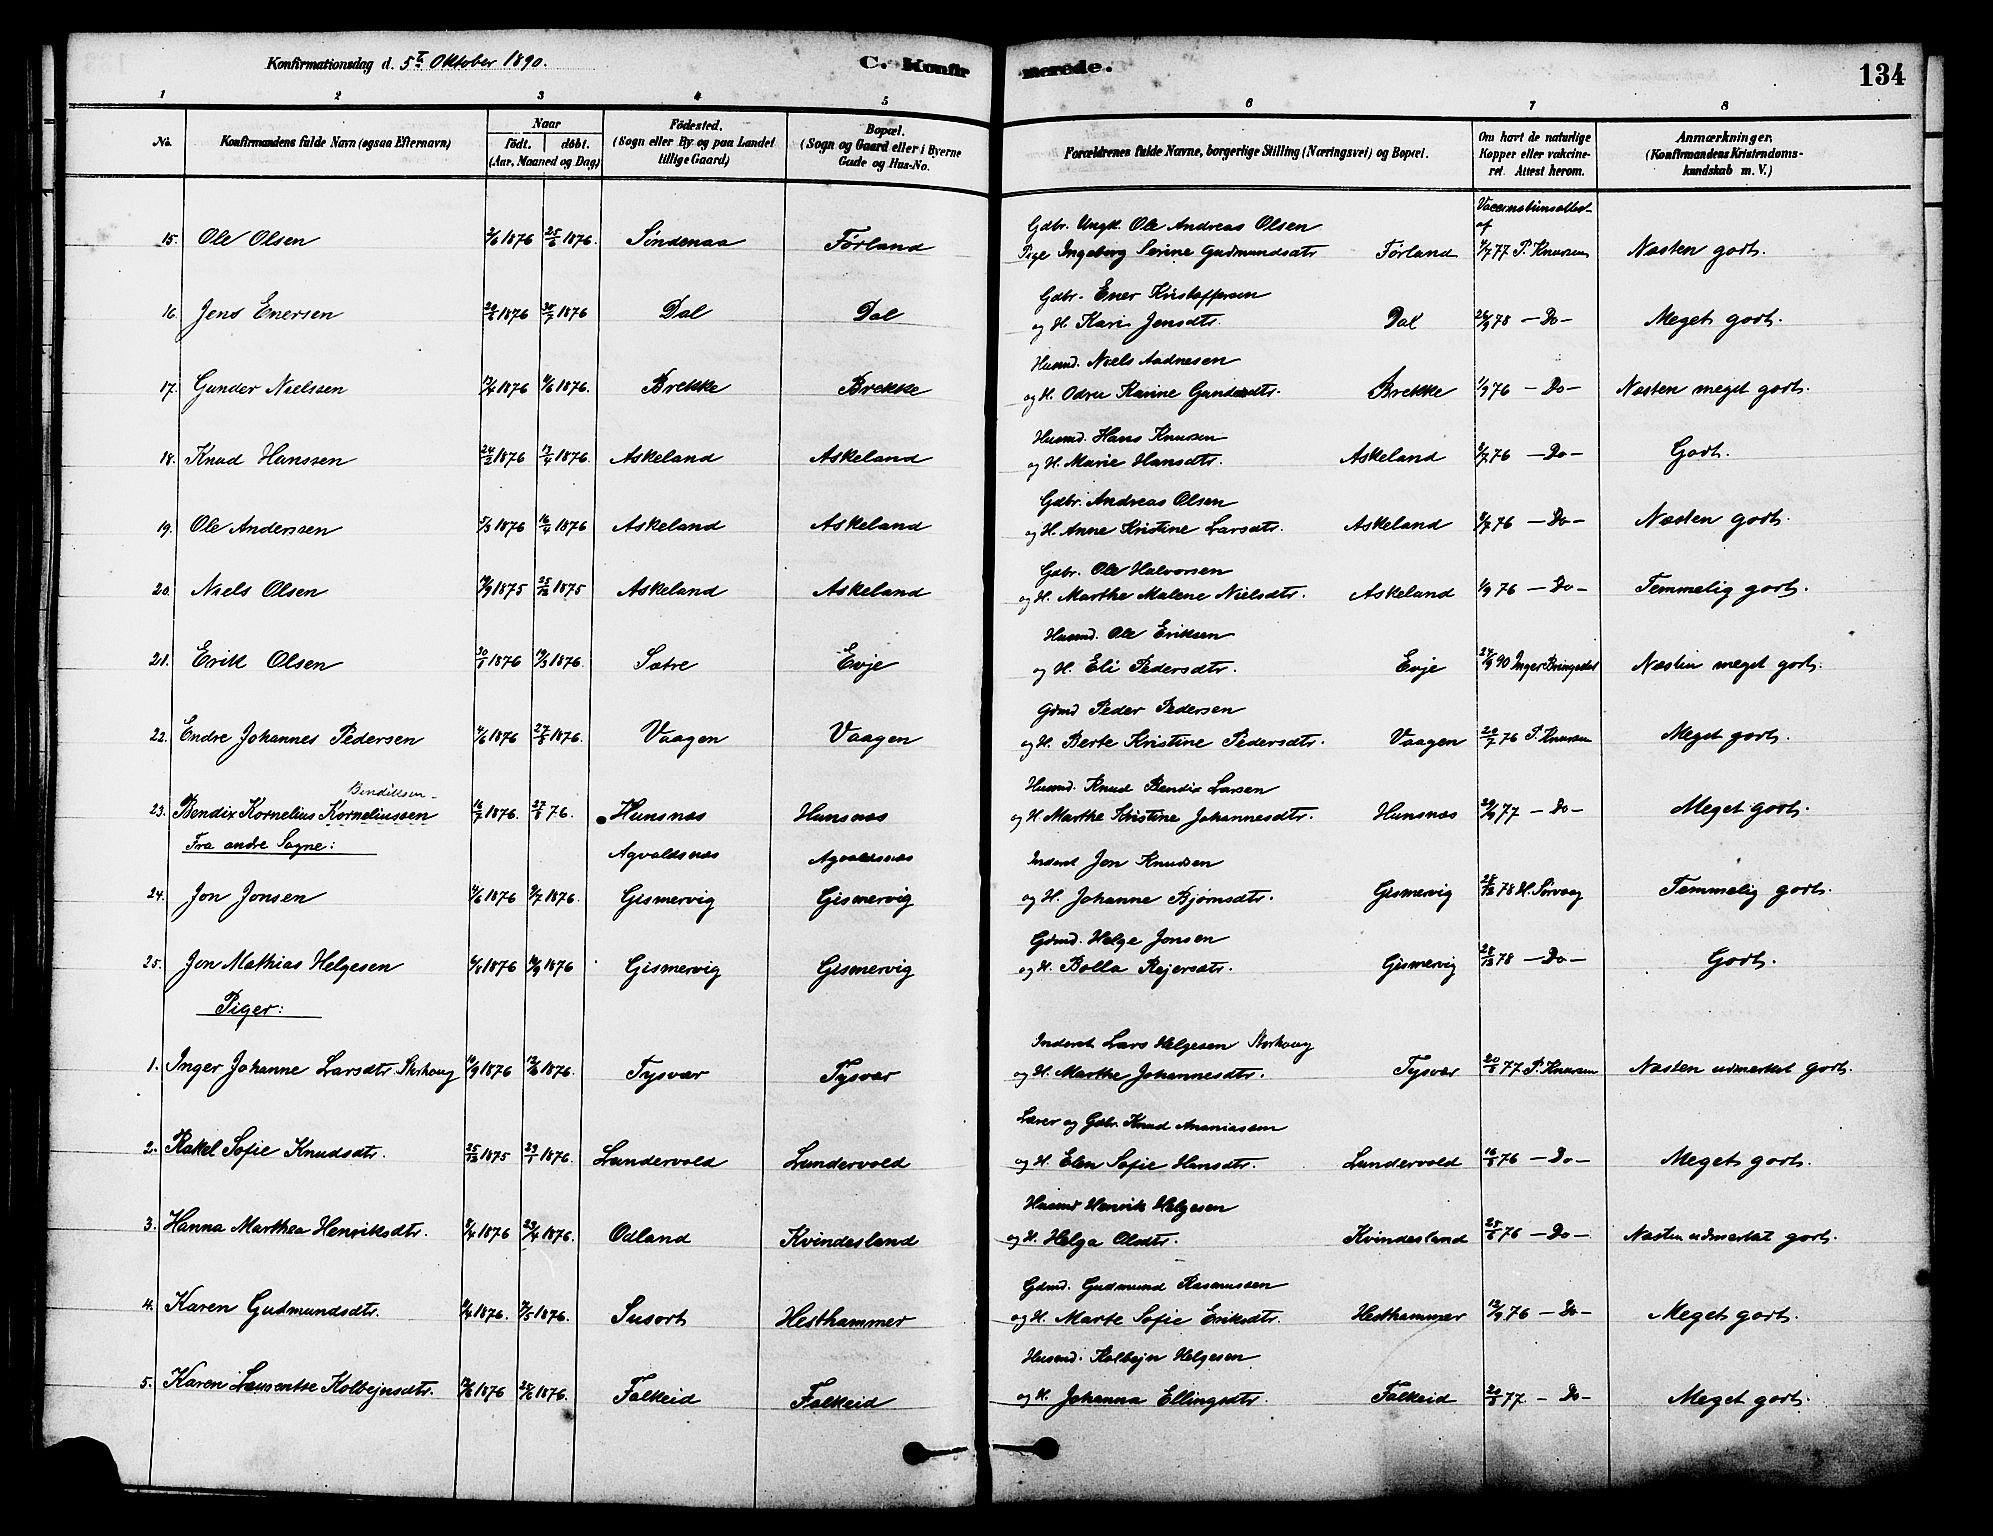 Konfirmationsdag d. 5te Oktober 1890.
C. Konfirmerede.
134
1 2 3 4 5 6 7 8
No.
Konfirmandens fulde Navn (ogsaa Efternavn)
Naar
födt. döbt.
(Aar, Maaned og Dag)
Födested.
(Sogn eller By og paa Landet
tillige Gaard)
Bopæl.
(Sogn og Gaard eller i Byerne
Gade og Hus-No.
Forældrenes fulde Navne, borgerlige Stilling (Næringsvei) og Bopæl.
Om havt de naturlige
Kopper eller vakcine-
ret. Attest herom.
Anmærkninger,
(Konfirmandens Kristendoms-
kundskab m. V.)
Gdbr. Ungk. Ole Andreas Olsen
af
15. Ole Olsen 2/6 1876 25/6 1876. Söndenaa Førland Pige Ingeborg Serine Gudmundsdtr Førland 77 P. Knutsen Næsten godt.
Gdbr. Ener Kristoffersen
16. Jens Enersen 1876 1876 Dal Dal og H. Kari Jensdtr. Dal 78 — Do — Meget godt.
Husmd. Niels Aadnesen
17. Gunder Nielssen 1876 1876. Brekke Brekke og H. Karine Brekke 1/9 76 — Do — Næsten meget godt.
Husmd. Hans Knutsen
18. Knud Hanssen 24/2 1876 17/4 1876. Askeland Askeland og H. Marie Hansdtr. Askeland 76 — Do — Godt.
Gdbr. Andreas Olsen
19. Ole Anderssen 1876 16/4 1876 Askeland Askeland og H. Anne Kristine Larsdtr. Askeland 76 — Do — Næsten godt.
Gdbr. Ole Halvorsen
20. Niels Olsen 1875 1875 Askeland Askeland og H. Marthe Malene Nielsdtr. Askeland 1/9 76 — Do — Temmelig godt.
Husmd. Ole Eriksen
21. Erik Olsen 30/1 1876 19/3 1876. Sætre Evje og H. Eli Pedersdtr. Evje 24/9 90 Inger Bringedal Næsten meget godt.
Gdmd Peder Pedersen
22. Endre Johannes Pedersen 1876 27/8 1876. Vaagen Vaagen og H. Berte Kristine Pedersdtr. Vaagen 20/7 76 P. Knutsen Meget godt.
Bendiksen
Husmd. Knud Bendix Larsen
23. Bendix Kornelius Korneliussen 16/7 1876. 27/8 76. Hunsnæs Hunsnæs og H. Marthe Kristine Johannesdtr. Hunsnæs 77 — Do — Meget godt.
Fra andre Sogne:
Agvaldsnæs Agvaldsnæs
Inderst Jon Knudsen
24. Jon Jonsen 1876 1876. Gismervig Gismervig og H. Johanne Bjørnsdtr. Gismervig 78 H. Sørvaag Temmelig godt.
Gdmd. Helge Jonsen
25. Jon Mathias Helgesen 1876 1876 Gismervig Gismervig og H. Bolla Rejersdtr. Gismervig 78 — Do — Godt.
Piger:
Inderst Lars Helgesen Storhaug
1. Inger Johanne Larsdtr. Storhaug 1876 1876. Tysvær Tysvær og H. Marthe Johannesdtr. Tysvær 77 P. Knutsen Næsten udmærket godt.
Lærer og Gdbr. Knud Ananiassen
2. Rakel Sofie Knudsdtr. 25/12 1875 23/1 1876. Lundervold Lundervold og H. Elen Sofie Hansdtr. Lundervold 76 — Do — Meget godt.
Husmd Henrik Helgesen
3. Hanna Marthea Henriksdtr. 1876 23/4 1876. Odland Kvindesland og H. Helga Olsdtr. Kvindesland 76 — Do — Næsten udmærket godt.
Gdmd. Gudmund Rasmussen
4. Karen Gudmundsdtr. 1876. 1876. Susort Hesthammer og H. Marte Sofie Eriksdtr. Hesthammer 12/9 76 — Do — Meget godt.
Husmd. Kolbejn Helgesen
5. Karen Kolbejnsdtr. 1876 25/6 1876. Falkeid Falkeid og H. Johanna Ellingsdtr. Falkeid 77 — Do — Meget godt.